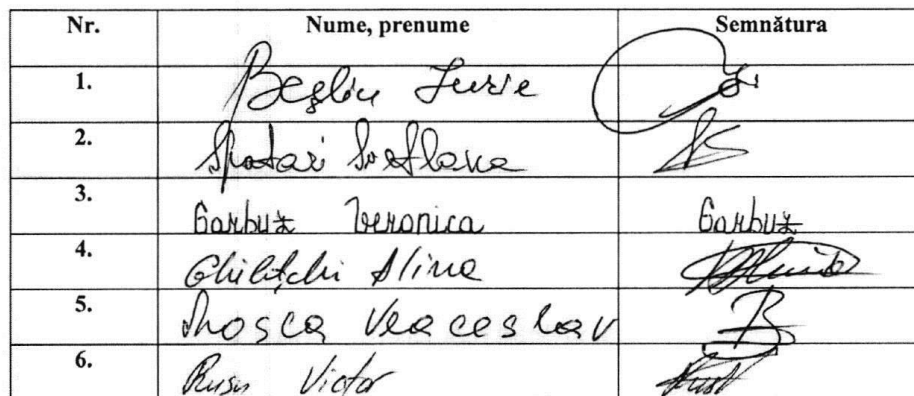 Nr. Nume, prenume Semnătura
1. Beșliu Iurie
2. Spatari Svetlana
3. Garbuz Veronica Garbuz
4. Ghilețchi Alina
5. Mosca Veaceslav
6. Rusu Victor